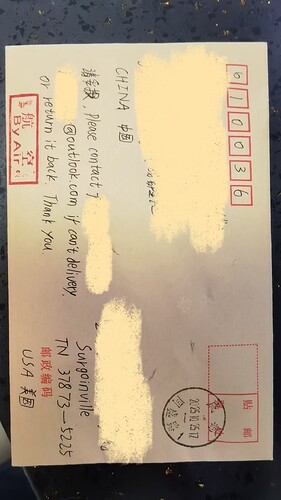 610036
贴 邮
票 处
CHINA 中国
请妥投, Please contact
@outlook.com if can't delivery.
or return it back. Thank you.
航空
By Air
Surgoinville
TN 37873-5225
邮政编码
USA 美国